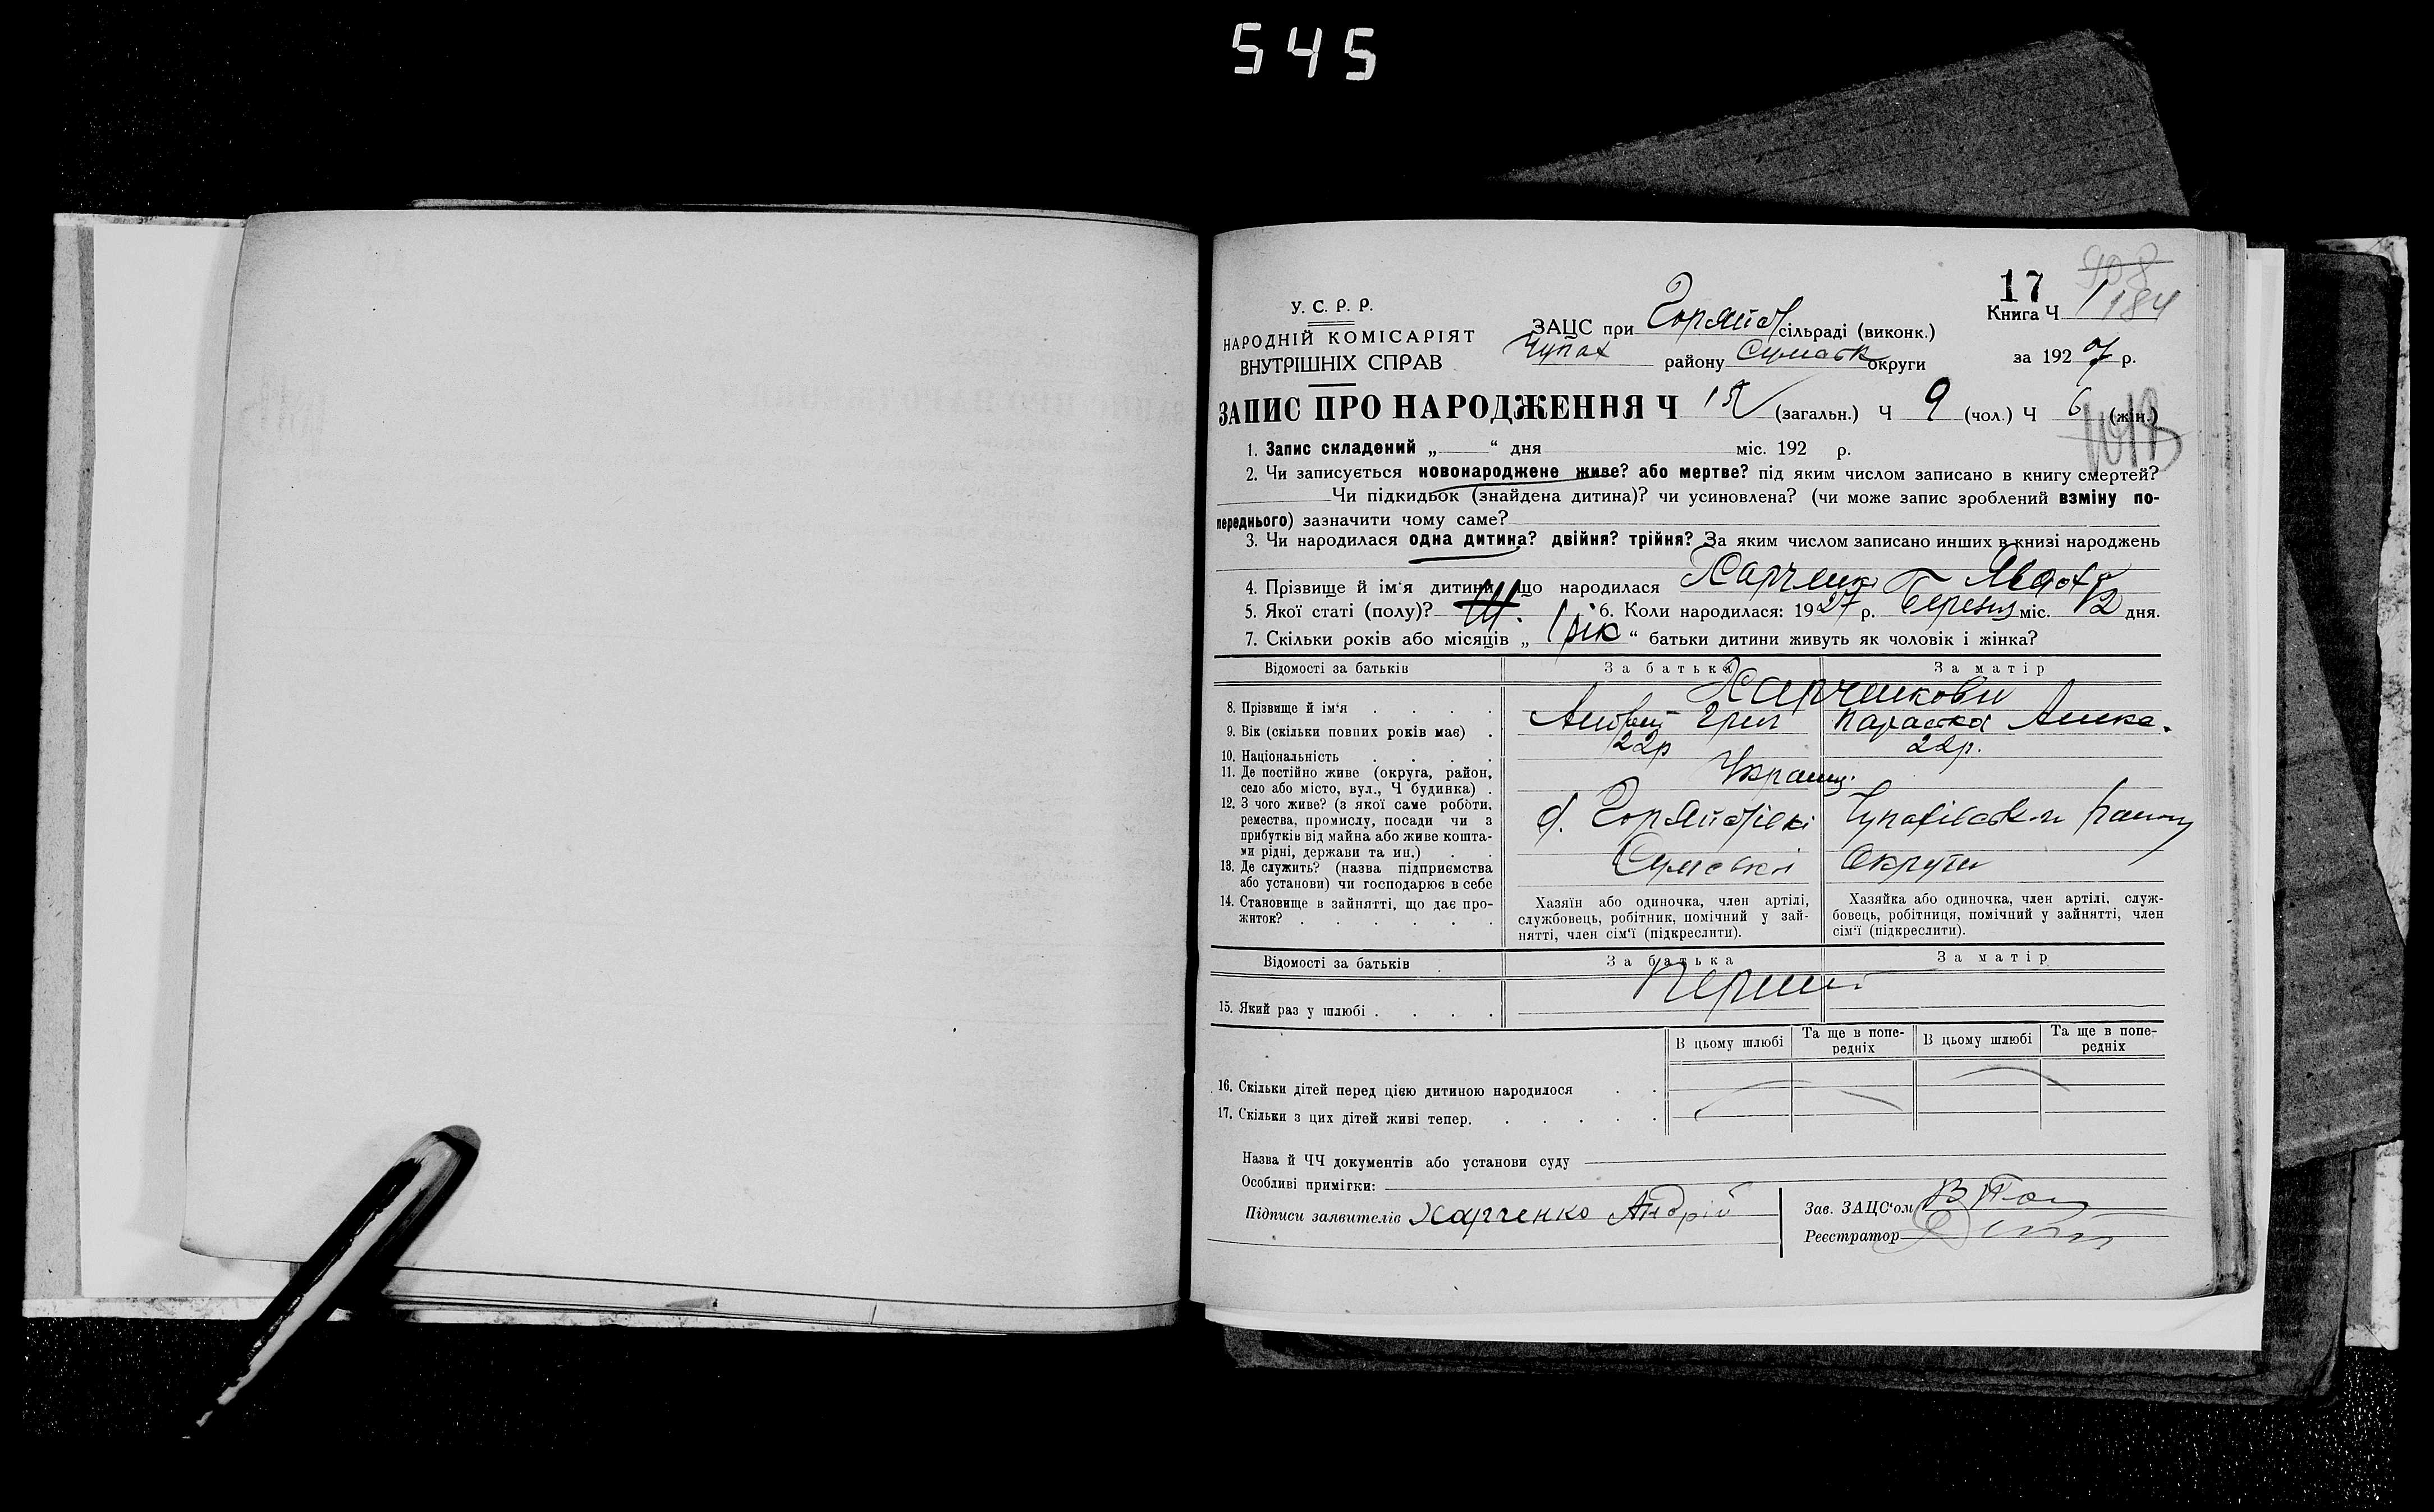 545
17
У. С. Р. Р.
НАРОДНІЙ КОМІСАРІЯТ
ВНУТРІШНІХ СПРАВ
ЗАЦС при Горяйст сільраді (виконк.)
Чупах району Сумськ округи
Книга Ч 1 184
за 1927 р.
ЗАПИС ПРО НАРОДЖЕННЯ Ч 15 (загальн.) Ч 9 (чол.) Ч 6 (жін.)
1. Запис складений „ “ дня міс. 192 р.
2. Чи записується новонароджене живе? або мертве? під яким числом записано в книгу смертей?
Чи підкидьок (знайдена дитина)? чи усиновлена? (чи може запис зроблений взміну по-
переднього) зазначити чому саме?
3. Чи народилася одна дитина? двійня? трійня? За яким числом записано инших в книзі народжень
4. Прізвище й ім‘я дитини що народилася Харченко
5. Якої статі (полу)? 6. Коли народилася: 1927 р. Березня міс. 12 дня.
7. Скільки років або місяців „ 1 рік “ батьки дитини живуть як чоловік і жінка?
Відомості за батьків За батька За матір
Харченкови
8. Прізвище й ім‘я Андрей Григ Параска Алекс.
9. Вік (скільки повних років має) 22р 22р.
10. Національність Украінц.
11. Де постійно живе (округа, район,
село або місто, вул., Ч будинка)
12. З чого живе? (з якої саме роботи,
ремества, промислу, посади чи з
прибутків від майна або живе кошта-
ми рідні, держави та ин.)
с. Чупахівськ. району
Сумської Округи
13. Де служить? (назва підприємства
або установи) чи господарює в себе
14. Становище в зайнятті, що дає про-
житок?
Хазяїн або одиночка, член артілі,
службовець, робітник, помічний у зай-
нятті, член сім‘ї (підкреслити).
Хазяйка або одиночка, член артілі, служ-
бовець, робітниця, помічний у зайнятті, член
сім‘ї (підкреслити).
Відомості за батьків За батька За матір
15. Який раз у шлюбі Перший
В цьому шлюбі Та ще в попе-
редніх В цьому шлюбі Та ще в попе-
редніх
16. Скільки дітей перед цією дитиною народилося
17. Скільки з цих дітей живі тепер.
Назва й ЧЧ документів або установи суду
Особливі примігки:
Підписи заявителів Харченко Андрій
Зав. ЗАЦС‘ом
Реєстратор